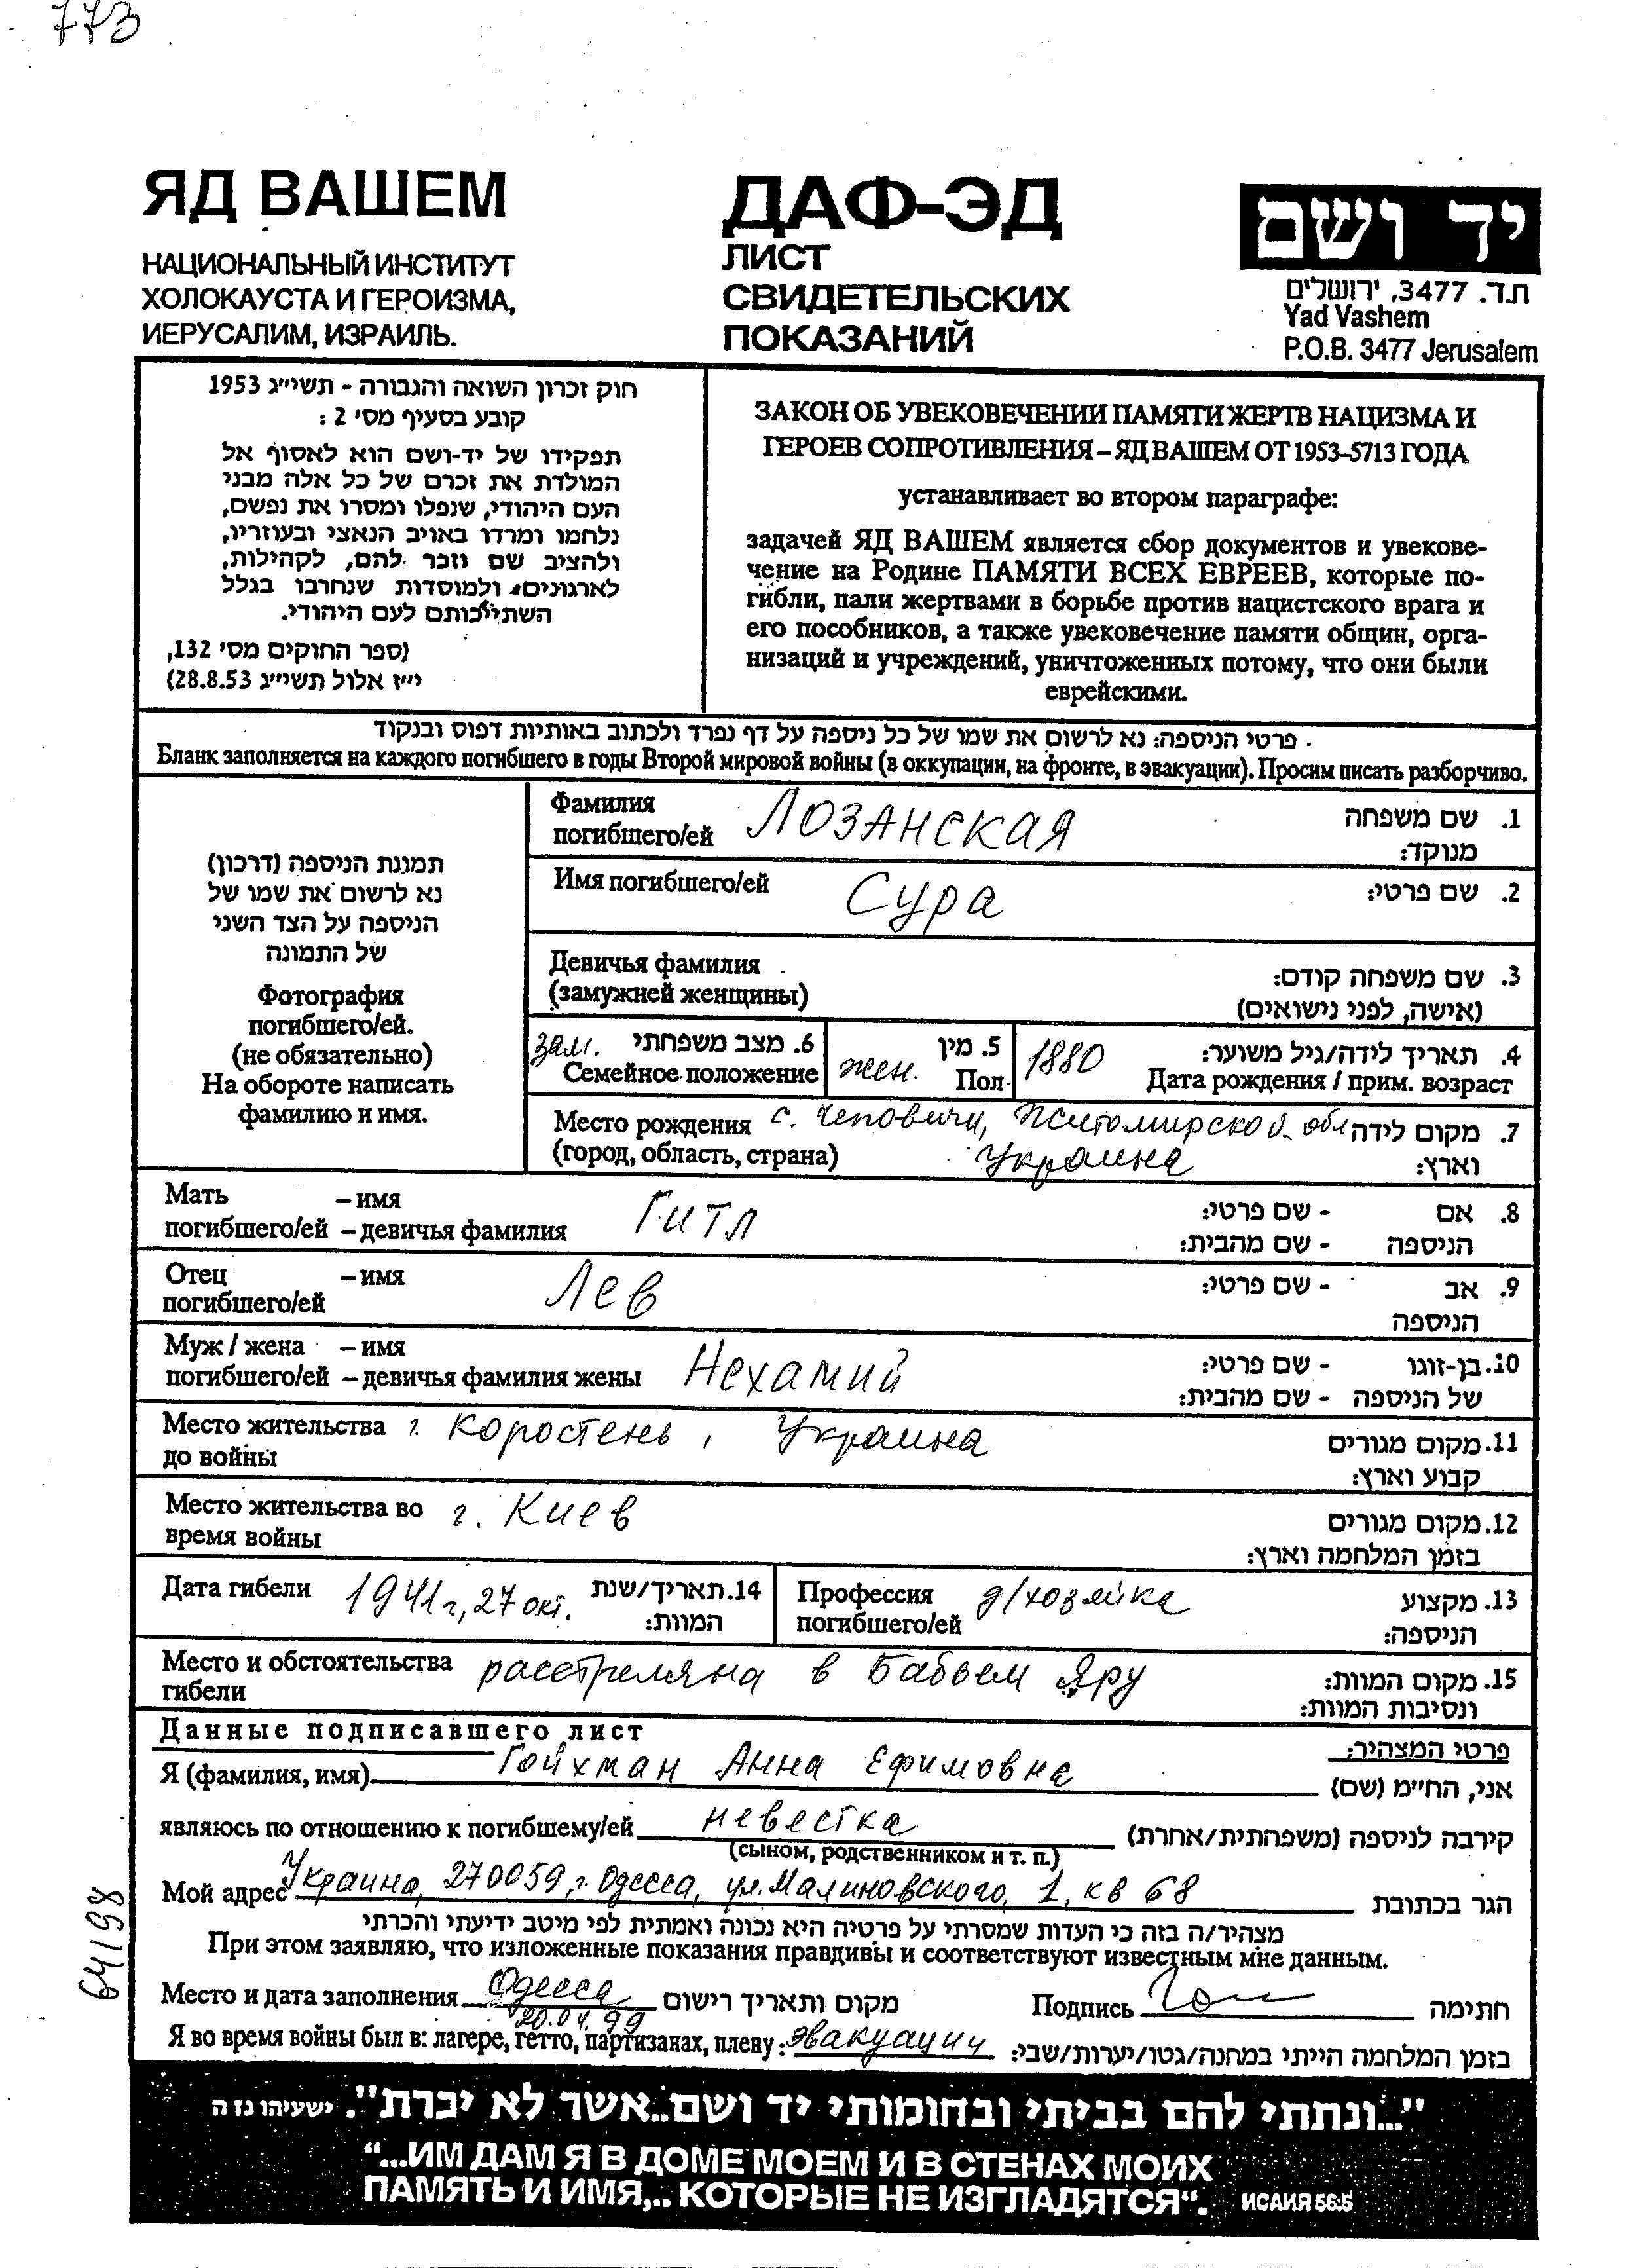 773
ЯД ВАШЕМ
НАЦИОНАЛЬНЫЙ ИНСТИТУТ
ХОЛОКАУСТА И ГЕРОИЗМА,
ИЕРУСАЛИМ, ИЗРАИЛЬ.
ДАФ-ЭД
ЛИСТ
СВИДЕТЕЛЬСКИХ
ПОКАЗАНИЙ
יד ושם
ת.ד. 3477, ירושלים
Yad Vashem
P.O.B. 3477 Jerusalem
חוק זכרון השואה והגבורה - תשי״ג 1953
קובע בסעיף מסי 2 :
תפקידו של יד-ושם הוא לאסוף אל
המולדת את זכרם של כל אלה מבני
העם היהודי, שנפלו ומסרו את נפשם,
נלחמו ומרדו באויב הנאצי ובעוזריו,
ולהציב שם וזכר להם, לקהילות,
לארגונים ולמוסדות שנחרבו בגלל
השתייכותם לעם היהודי.
(ספר החוקים מסי 132,
י״ז אלול תשי״ג 28.8.53)
ЗАКОН ОБ УВЕКОВЕЧЕНИИ ПАМЯТИ ЖЕРТВ НАЦИЗМА И
ГЕРОЕВ СОПРОТИВЛЕНИЯ – ЯД ВАШЕМ ОТ 1953–5713 ГОДА
устанавливает во втором параграфе:
задачей ЯД ВАШЕМ является сбор документов и увекове-
чение на Родине ПАМЯТИ ВСЕХ ЕВРЕЕВ, которые по-
гибли, пали жертвами в борьбе против нацистского врага и
его пособников, а также увековечение памяти общин, орга-
низаций и учреждений, уничтоженных потому, что они были
еврейскими.
פרטי הניספה: נא לרשום את שמו של כל ניספה על דף נפרד ולכתוב באותיות דפוס ובנקוד.
Бланк заполняется на каждого погибшего в годы Второй мировой войны (в оккупации, на фронте, в эвакуации). Просим писать разборчиво.
תמונת הניספה (דרכון)
נא לרשום את שמו של
הניספה על הצד השני
של התמונה
Фотография
погибшего/ей.
(не обязательно)
На обороте написать
фамилию и имя.
Фамилия
погибшего/ей ЛОЗАНСКАЯ
1. שם משפחה
מנוקד:
Имя погибшего/ей Сура 2. שם פרטי:
Девичья фамилия
(замужней женщины)
3. שם משפחה קודם:
(אישה, לפני נישואים)
зам. 6. מצב משפחתי
Семейное положение
5. מין
жен. Пол
1880 4. תאריך לידה/גיל משוער:
Дата рождения / прим. возраст
Место рождения с. Чеповичи, Житомирской обл 7. מקום לידה
(город, область, страна) Украина וארץ:
Мать – имя
погибшего/ей – девичья фамилия Гитл
8. אם - שם פרטי:
הניספה - שם מהבית:
Отец – имя
погибшего/ей Лев
9. אב - שם פרטי:
הניספה
Муж / жена – имя
погибшего/ей – девичья фамилия жены Нехамий
10. בן-זוגו - שם פרטי:
של הניספה - שם מהבית:
Место жительства г. Коростень, Украина
до войны
11. מקום מגורים
קבוע וארץ:
Место жительства во г. Киев
время войны
12. מקום מגורים
בזמן המלחמה וארץ:
Дата гибели 1941г, 27 окт. 14. תאריך/שנת
המוות:
Профессия д/хозяйка
погибшего/ей
13. מקצוע
הניספה:
Место и обстоятельства расстреляна в Бабьем Яру
гибели
15. מקום המוות:
ונסיבות המוות:
Данные подписавшего лист
פרטי המצהיר:
Я (фамилия, имя) Гойхман Анна Ефимовна אני, החיימ (שם)
являюсь по отношению к погибшему/ей невестка קירבה לניספה (משפחתית/אחרת)
(сыном, родственником и т. п.)
Мой адрес Украина, 270059, г. Одесса, ул. Малиновского, 1, кв 68 הגר בכתובת
מצהיר/ה בזה כי העדות שמסרתי על פרטיה היא נכונה ואמתית לפי מיטב ידיעתי והכרתי
При этом заявляю, что изложенные показания правдивы и соответствуют известным мне данным.
Место и дата заполнения Одесса מקום ותאריך רישום Подпись חתימה
20.04.99
Я во время войны был в: лагере, гетто, партизанах, плену: эвакуации בזמן המלחמה הייתי במחנה/גטו/יערות/שבי:
64198
"...ונתתי להם בביתי ובחומותי יד ושם..אשר לא יכרת". ישעיהו נז ה
“...ИМ ДАМ Я В ДОМЕ МОЕМ И В СТЕНАХ МОИХ
ПАМЯТЬ И ИМЯ,.. КОТОРЫЕ НЕ ИЗГЛАДЯТСЯ“. ИСАИЯ 56:5